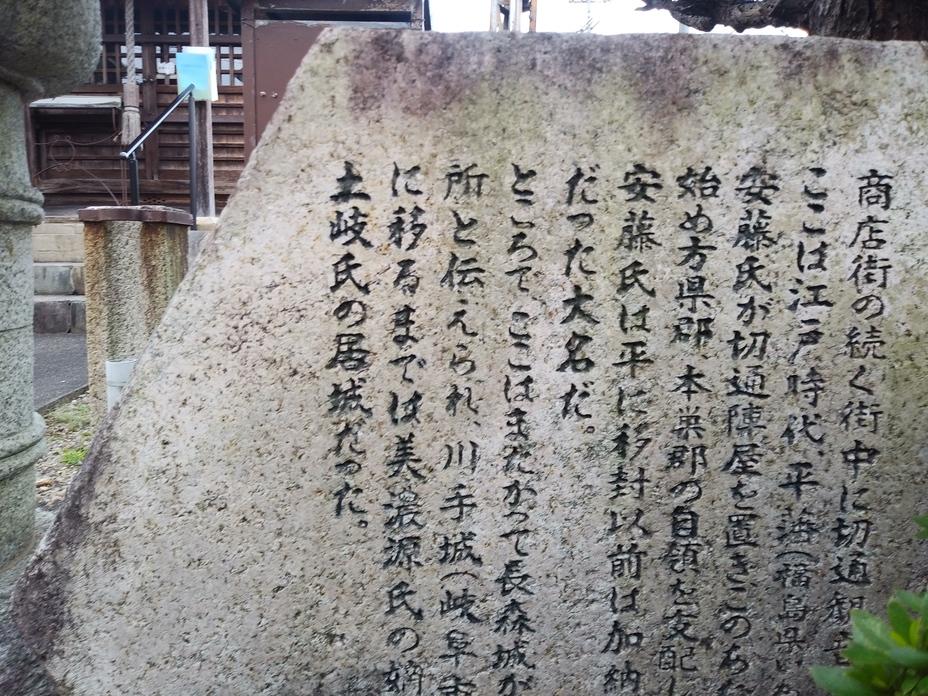 商店街の続く街中に切通観
ここは江戸時代、平藩(福島県い
安藤氏が切通陣屋を置きこのあた
始め方県郡、本巣郡の自領を支配し
安藤氏は平に移封以前は加納
だった大名だ。
ところでここはまたかつて長森城が
所と伝えられ、川手城(岐阜市
に移るまでは美濃源氏の嫡
土岐氏の居城だった。